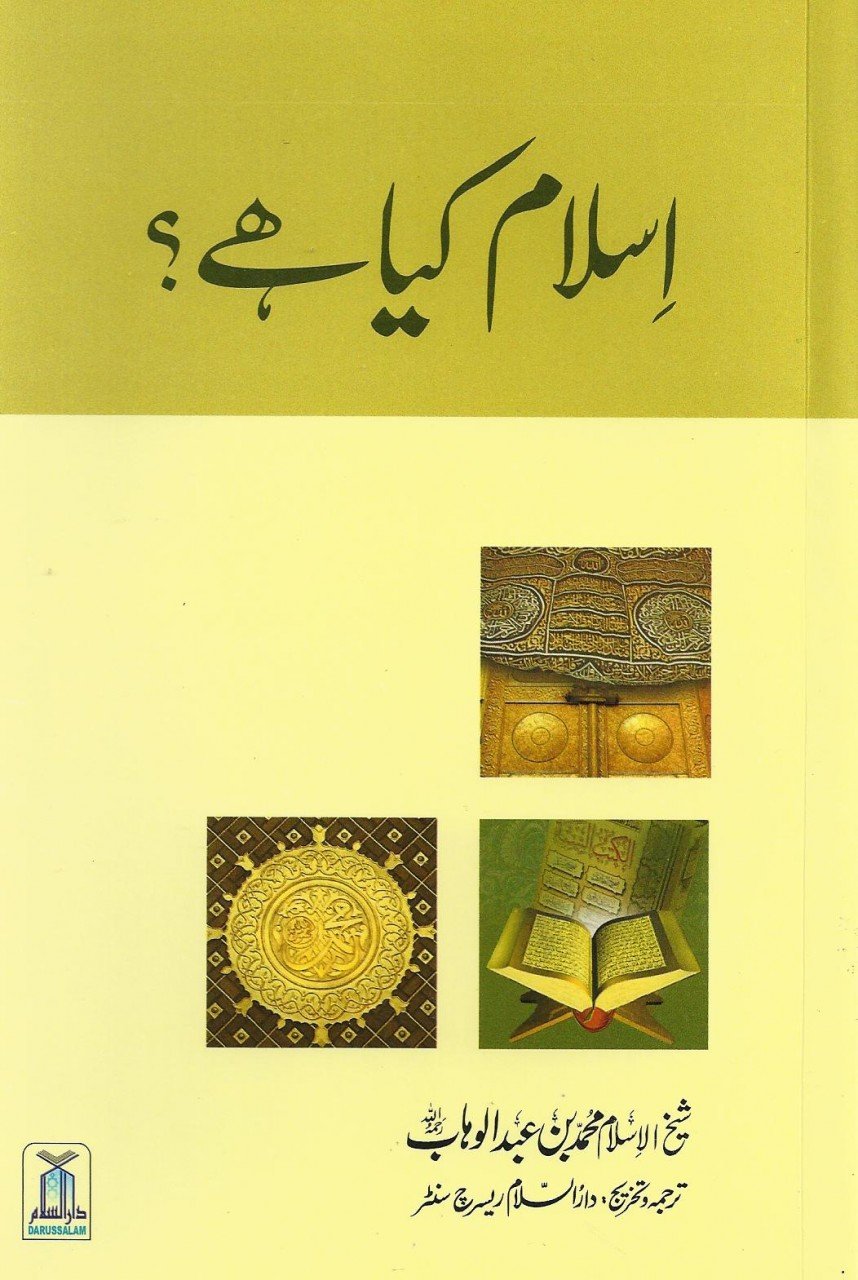 اِسلام کیا ھے؟
الکتب الستة
شیخ الاِسلام محمد بن عبدالوہاب رحمہ اللہ
ترجمہ وتخریج: دارُالسّلام ریسرچ سنٹر
دارالسلام
DARUSSALAM